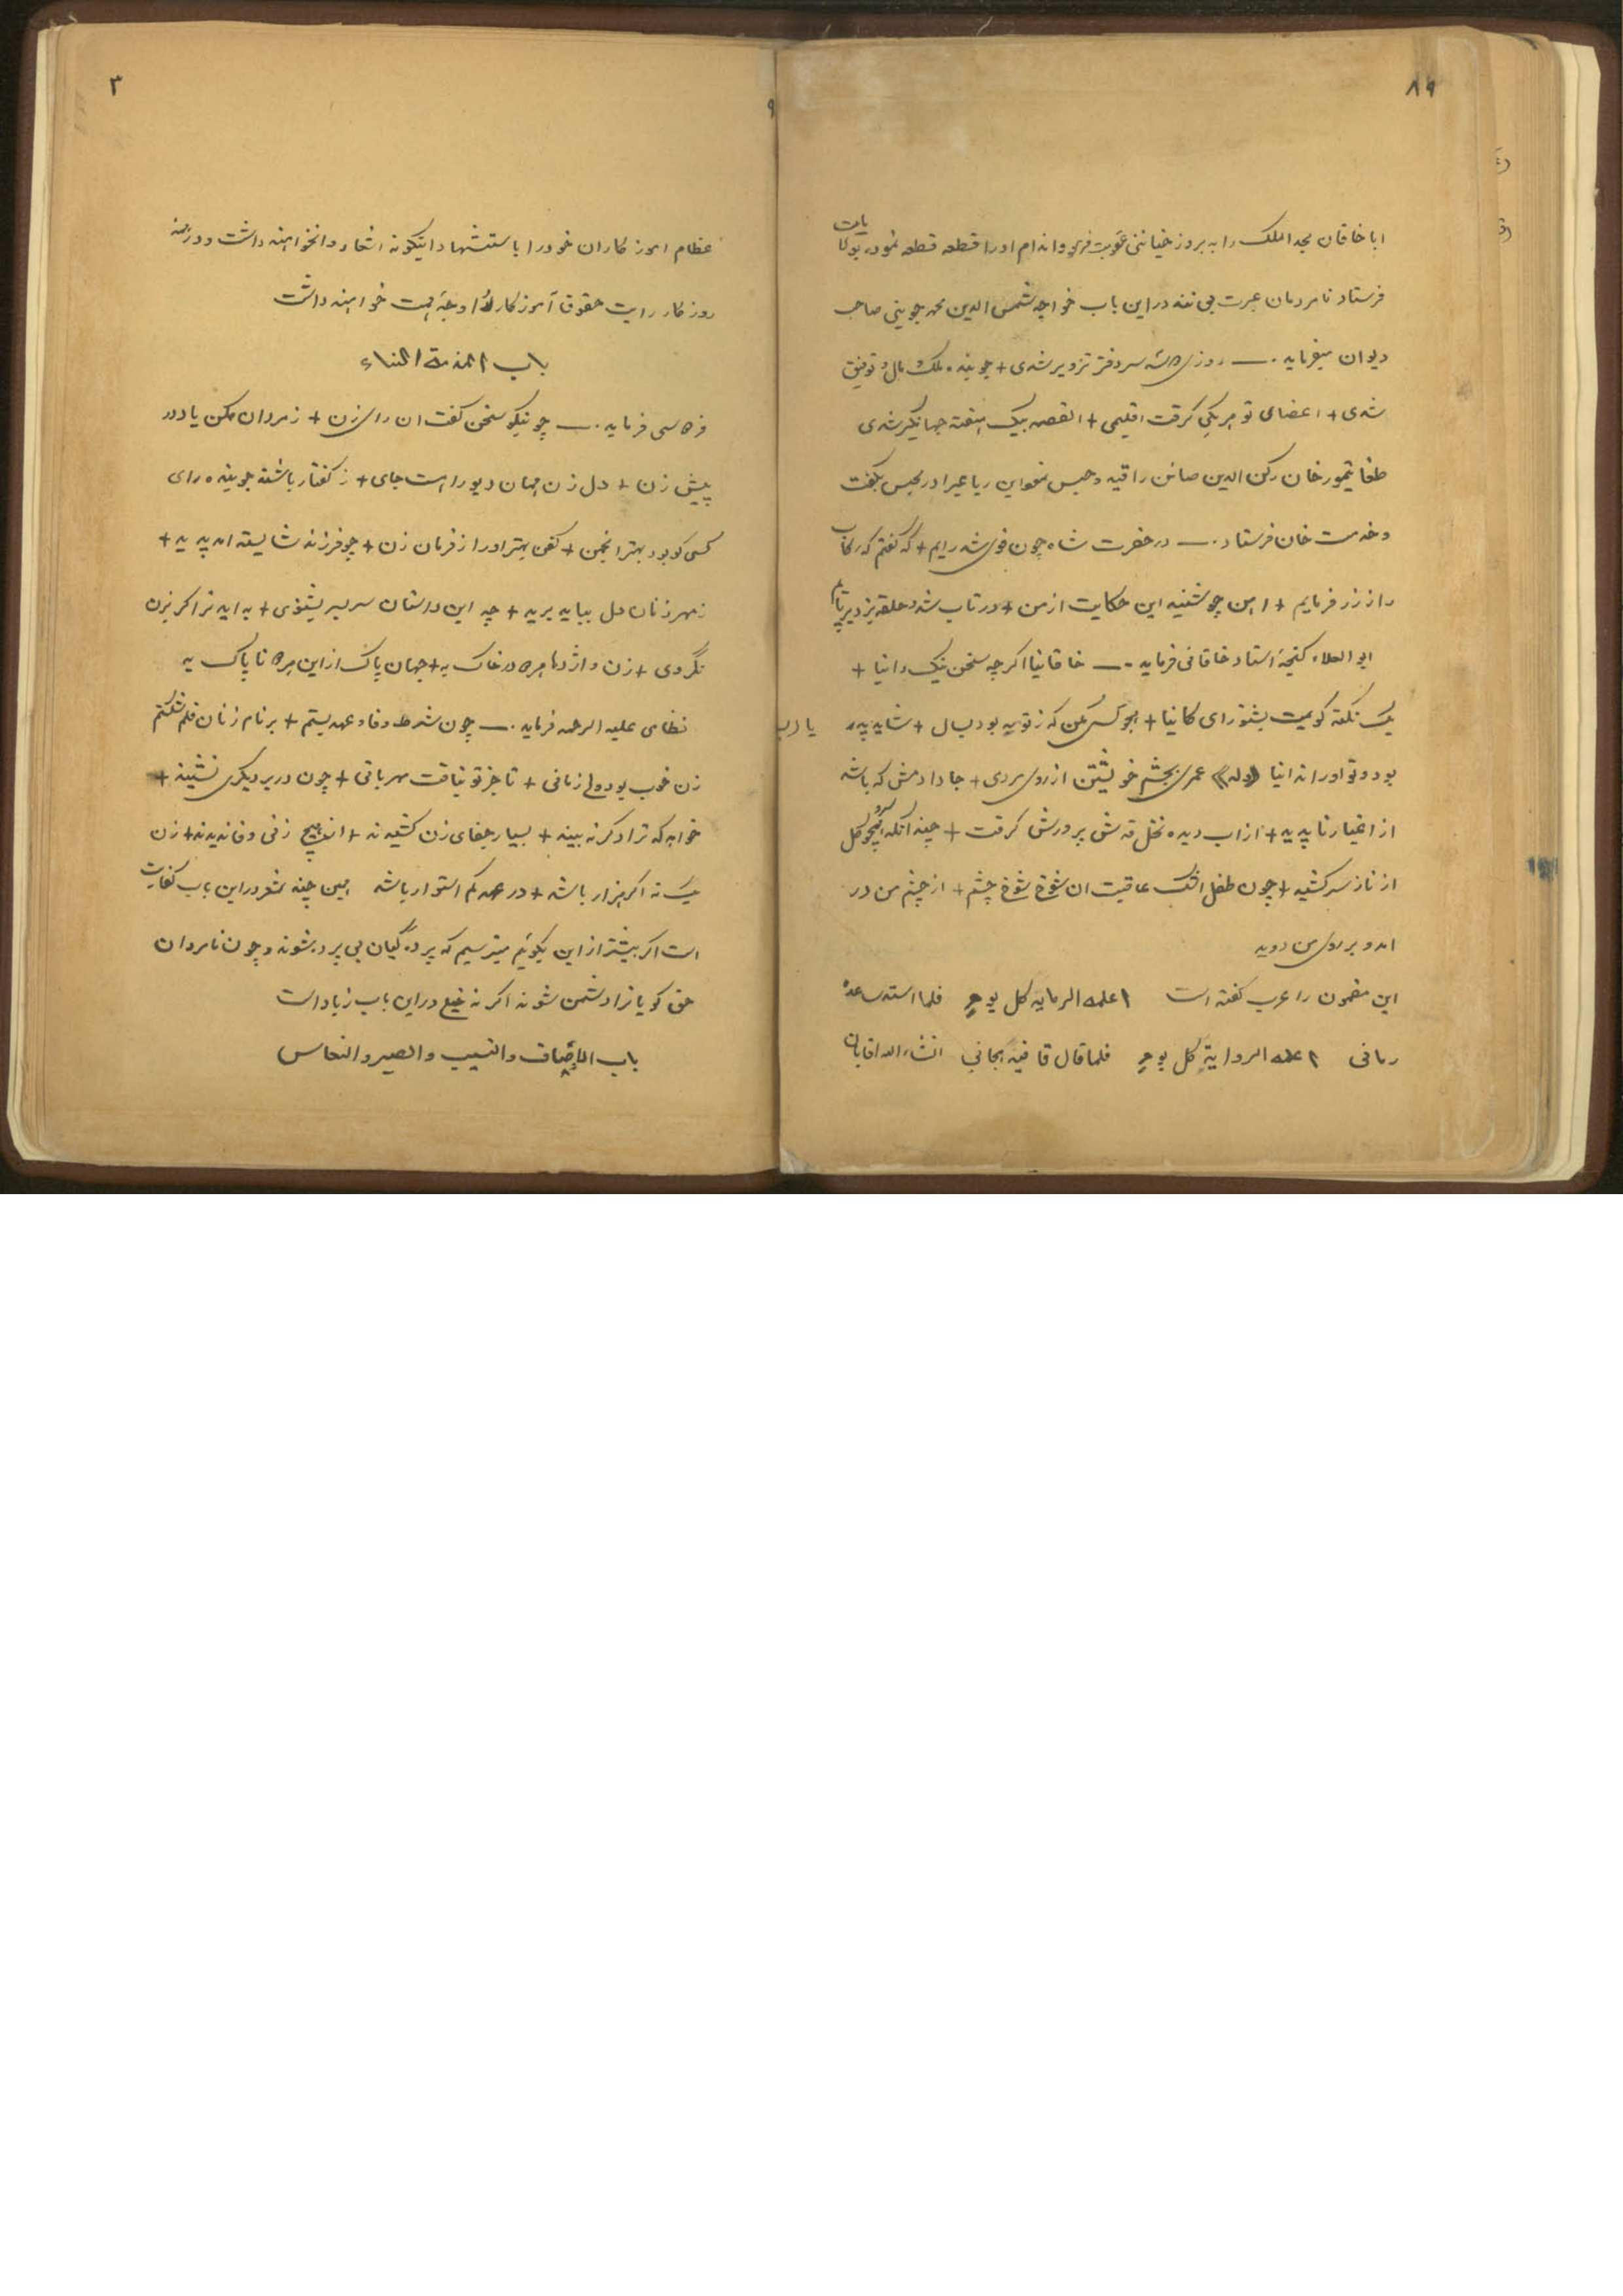 ۸۹
اباخاقان مجد الملک را به بروز خیانتی عقوبت فرمود و اندام او را قطعه قطعه نموده بولایات
فرستاد تا مردمان عبرت یابند در این باب خواجه شمس الدین محمد جوینی صاحب
دیوان میفرماید ـ روزی دو سه سر دفتر تزویر شدی + جوینده ملک و مال و توفیر
شدی + اعضای تو هر یکی گرفت اقلیمی + القصه بیک هفته جهانگیر شدی
طغا تیمور خان رکن الدین صاین را قید و حبس نمود این رباعی را در حبس بگفت
و خدمت خان فرستاد ـ در حضرت شاه چون قوی شد رایم + گفتم که رکاب
را ز زر فرمایم + اهن چو شنید این حکایت از من + در تاب شد و حلقه بزد بر پایم
ابو العلاء گنجه استاد خاقانی فرماید ـ خاقانیا اگرچه سخن نیک دانیا +
یک نکته گویمت بشنو رایگانیا + هجو کسی مکن که ز تو به بود بسال + شاید پدر
بود و تو او را ندانیا (وله) عمری بچشم خویشتن از روی مردمی + جا دادمش که باشد
از اغیار ناپدید + از اب دیده نخل قدش پرورش گرفت + چندانکه همچو سرو گل
از ناز سر کشید + چون طفل اشک عاقبت ان شوخ شوخ چشم + از چشم من در
امد و بر روی من دوید
این مضمون را عرب گفته است اعلمه الرمایه کل یوم فلما استد ساعده
رمانی اعلمه الروایة کل یوم فلما قال قافیة هجانی انشاء الله اقایان
۳
عظام اموزکاران خود را باستشهاد اینگونه اشعار وا نخواهند داشت و در همه
روزکار رایت حقوق آموزکار را وجهه همت خواهند داشت
باب المذمة النساء
فردوسی فرماید ـ چو نیکو سخن گفت ان رای زن + ز مردان مکن یاد در
پیش زن + دل زن همان دیو را هست جای + ز گفتار باشند جوینده رای
کسی کو بود بهتر انجمن + کفن بهتر او را ز فرمان زن + چو فرزند شایسته امد پدید +
ز مهر زنان دل بباید برید + چه این داستان سر بسر بشنوی + به اید ترا گر بزن
نگروی + زن و اژدها هر دو در خاک به + جهان پاک از این هر دو ناپاک به
نظامی علیه الرحمه فرماید ـ چون شرط وفا و عهد بستم + بر نام زنان قلم شکستم
زن خوب بود ولی زمانی + تا جز تو نیافت مهربانی + چون در بر دیگری نشیند +
خواهد که ترا دگر نبیند + بسیار جفای زن کشیدند + از هیچ زنی وفا ندیدند + زن
یک نه اگر هزار باشد + در عهد کم استوار باشد همین چند شعر در این باب کفایت
است اگر بیشتر از این بگویم میترسیم که پردگیان بی پرده شوند و چون نامردان
حق گویا ترا دشمن شوند اگر نه در این باب زیاد است
باب الاوصاف والنسیب والصبر والنحاس